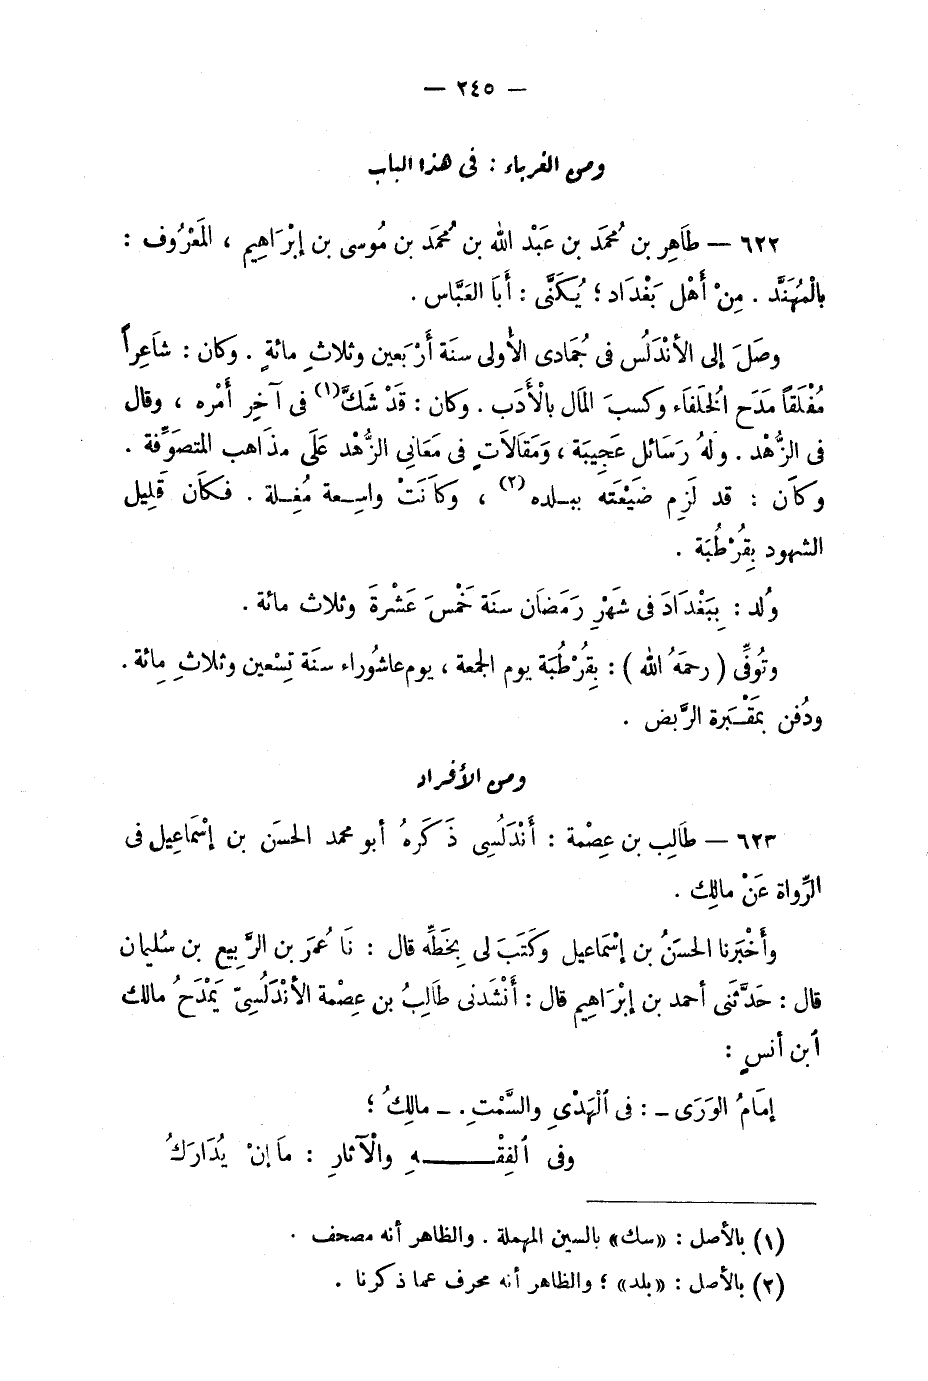 — ٢٤٥ —
ومن الغرباء : فى هذا الباب
٦٢٢ — طَاهِر بن مُحمَد بن عَبْد الله بن مُحمَد بن مُوسى بن إبْرَاهِيم ، المَعْرُوف :
بالْمُهَنَّد . مِنْ أَهْل بَغْدَاد ؛ يُكَنَّى : أَبَا العَبَّاس .
وصَلَ إلى الأنْدَلُس فى جُمَادى الأولى سنَة أَرْبَعين وثلاثِ مائةٍ . وكان : شاَعِراً
مُفْلَقاً مَدَح الخلَفَاء وكسبَ المَال بالْأَدَب . وكان : قَدْ شَكَّ(١) فى آخِر أَمْره ، وقال
فى الزُّهْد . ولَهُ رَسَائل عَجِيبَة ، وَمَقَالَات فى مَعَانِى الزُّهْد عَلَى مذاهب المتصوِّفة .
وكَان : قد لَزِم ضَيْعَته ببلده (٢) ، وكاَنَتْ واسِعة مُغِلة . فكاَن قَلِيل
الشهود بِقُرْطُبَة .
وُلد : بِبَغْدَادَ فى شَهْرِ رَمَضَان سنَة خَمْسَ عَشْرةَ وثلاث مائة .
وتُوفِّى ( رحمَهُ الله ) : بِقُرْطُبَة يوم الجمعة ، يوم عاشُوراء سنَة تِسْعين وثلاثِ مِائة .
ودُفن بمَقْبرة الرَّبض .
ومن الأفراد
٦٢٣ — طاَلِب بن عِصْمة : أَنْدَلُسِى ذَكَرهُ أبو محمد الحسَن بن إسْمَاعِيل فى
الرِّواة عَنْ مالِك .
وأَخْبَرنا الحسَنُ بن إسْمَاعيل وكَتَبَ لى بِخَطِّه قال : نَا عُمَر بن الرَّبِيع بن سُليمان
قال : حَدَّثَنى أحمد بن إبْرَاهِيم قال : أَنْشَدنى طَالِبُ بن عِصْمة الأنْدَلُسِىّ يَمْدَحُ مالك
ٱبن أنسٍ :
إمَامُ الوَرَى – : فى ٱلْهَدْىِ والسَّمْتِ . – مالِكُ ؛
وفى ٱلفِقْـــــهِ والْآثارِ : مَا إنْ يُدَارَكُ
(١) بالأصل : «سك» بالسين المهملة . والظاهر أنه مصحف .
(٢) بالأصل : «بلد» ؛ والظاهر أنه محرف عما ذكرنا .